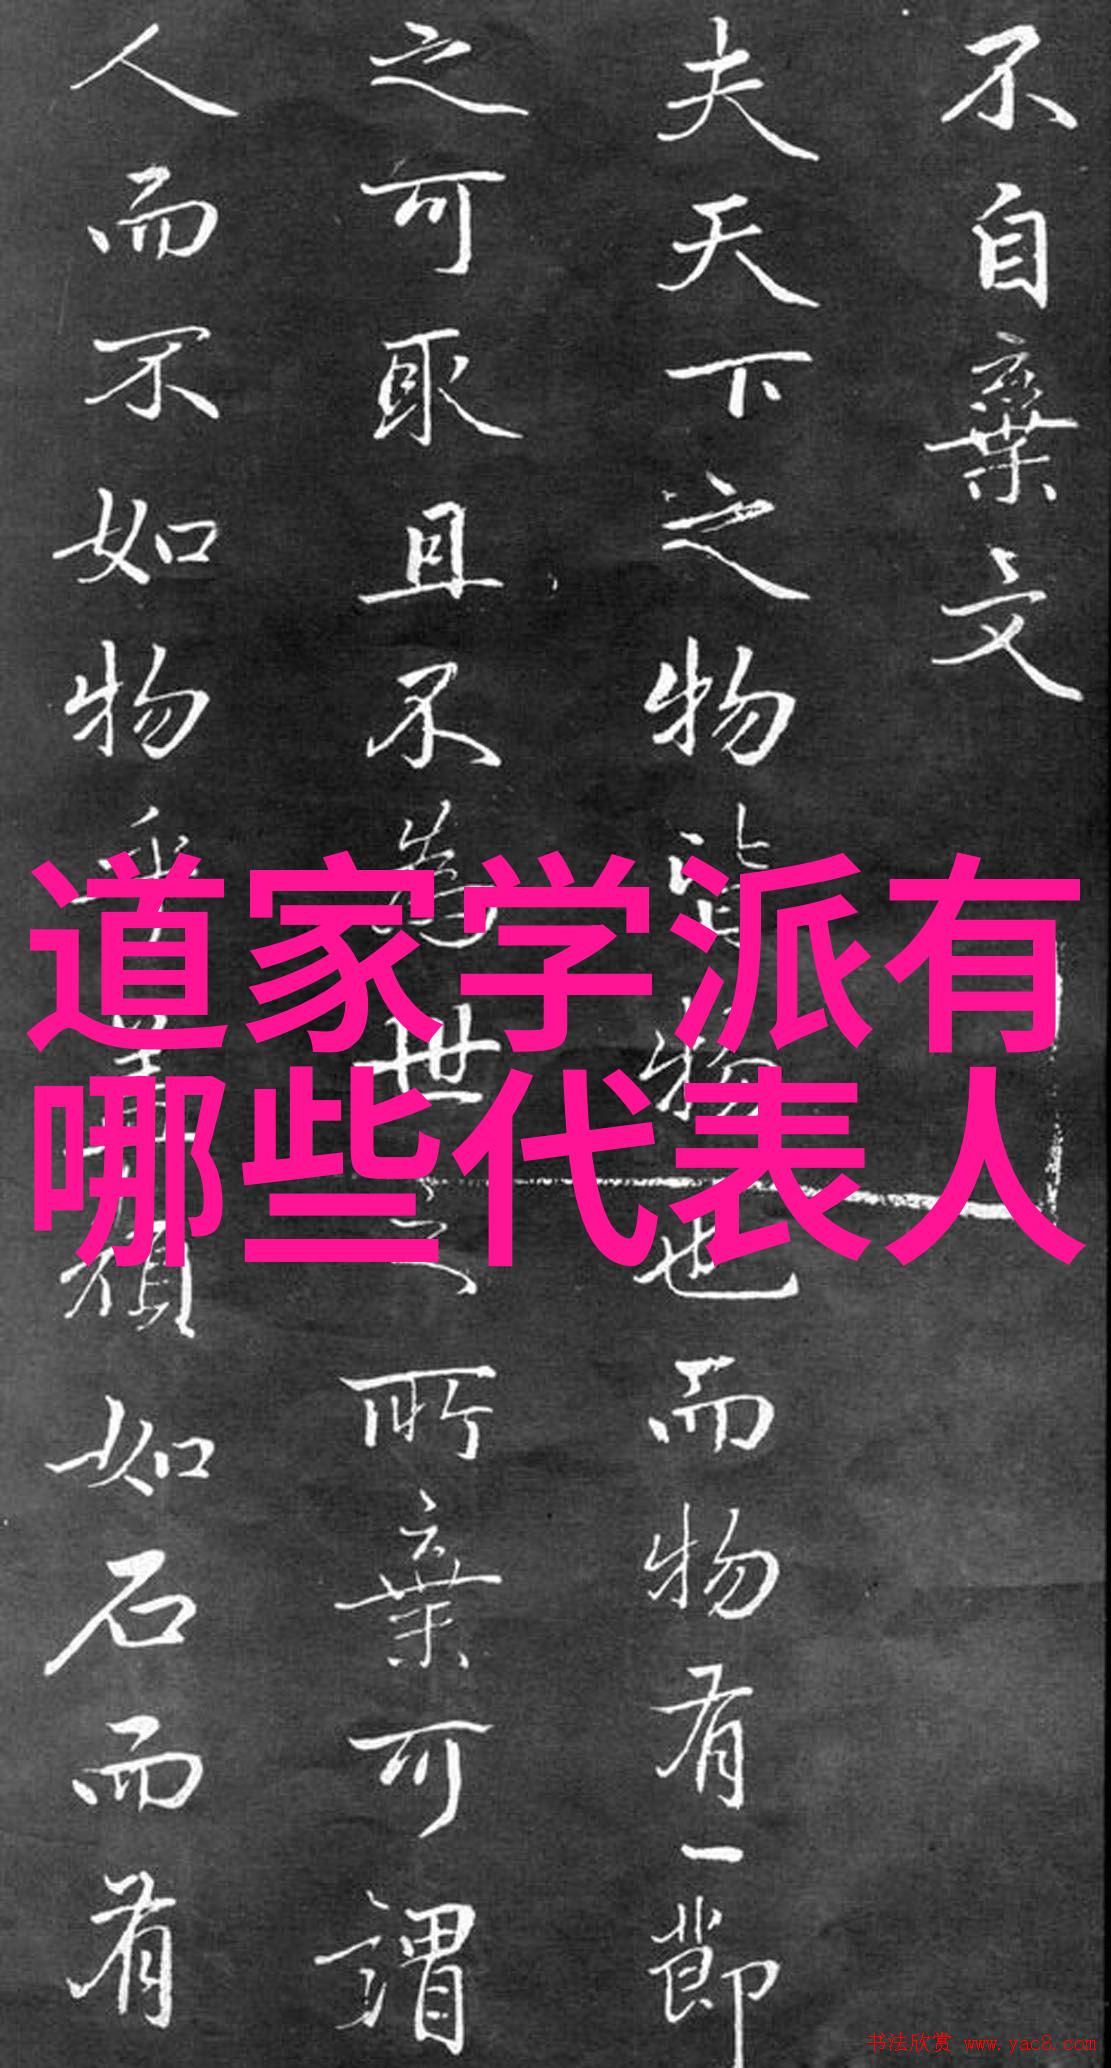 不自棄文
夫天下之物皆物也而物有一節
之可取且不為世之所棄可謂
人而不如物乎蓋頑如石而有
道家学派有
哪些代表人
书法欣赏 www.yac8.com